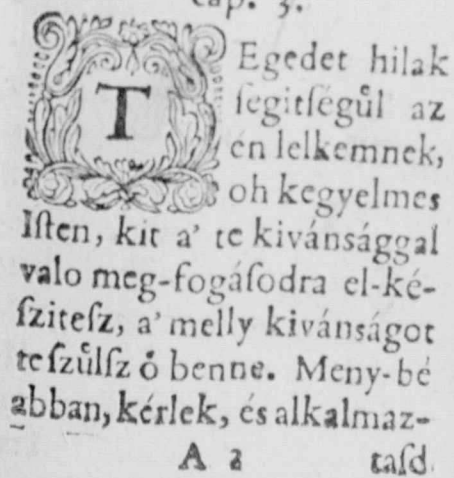 cap. 3.
TEgedet hilak
ſegitſégűl az
én lelkemnek,
oh kegyelmes
Iſten, kit a' te kivánsággal
valo meg-fogáſodra el-ké-
ſziteſz, a' melly kivánságot
te ſzűlſz ő benne. Meny-bé
abban, kérlek, és alkalmaz-
A 2 taſd